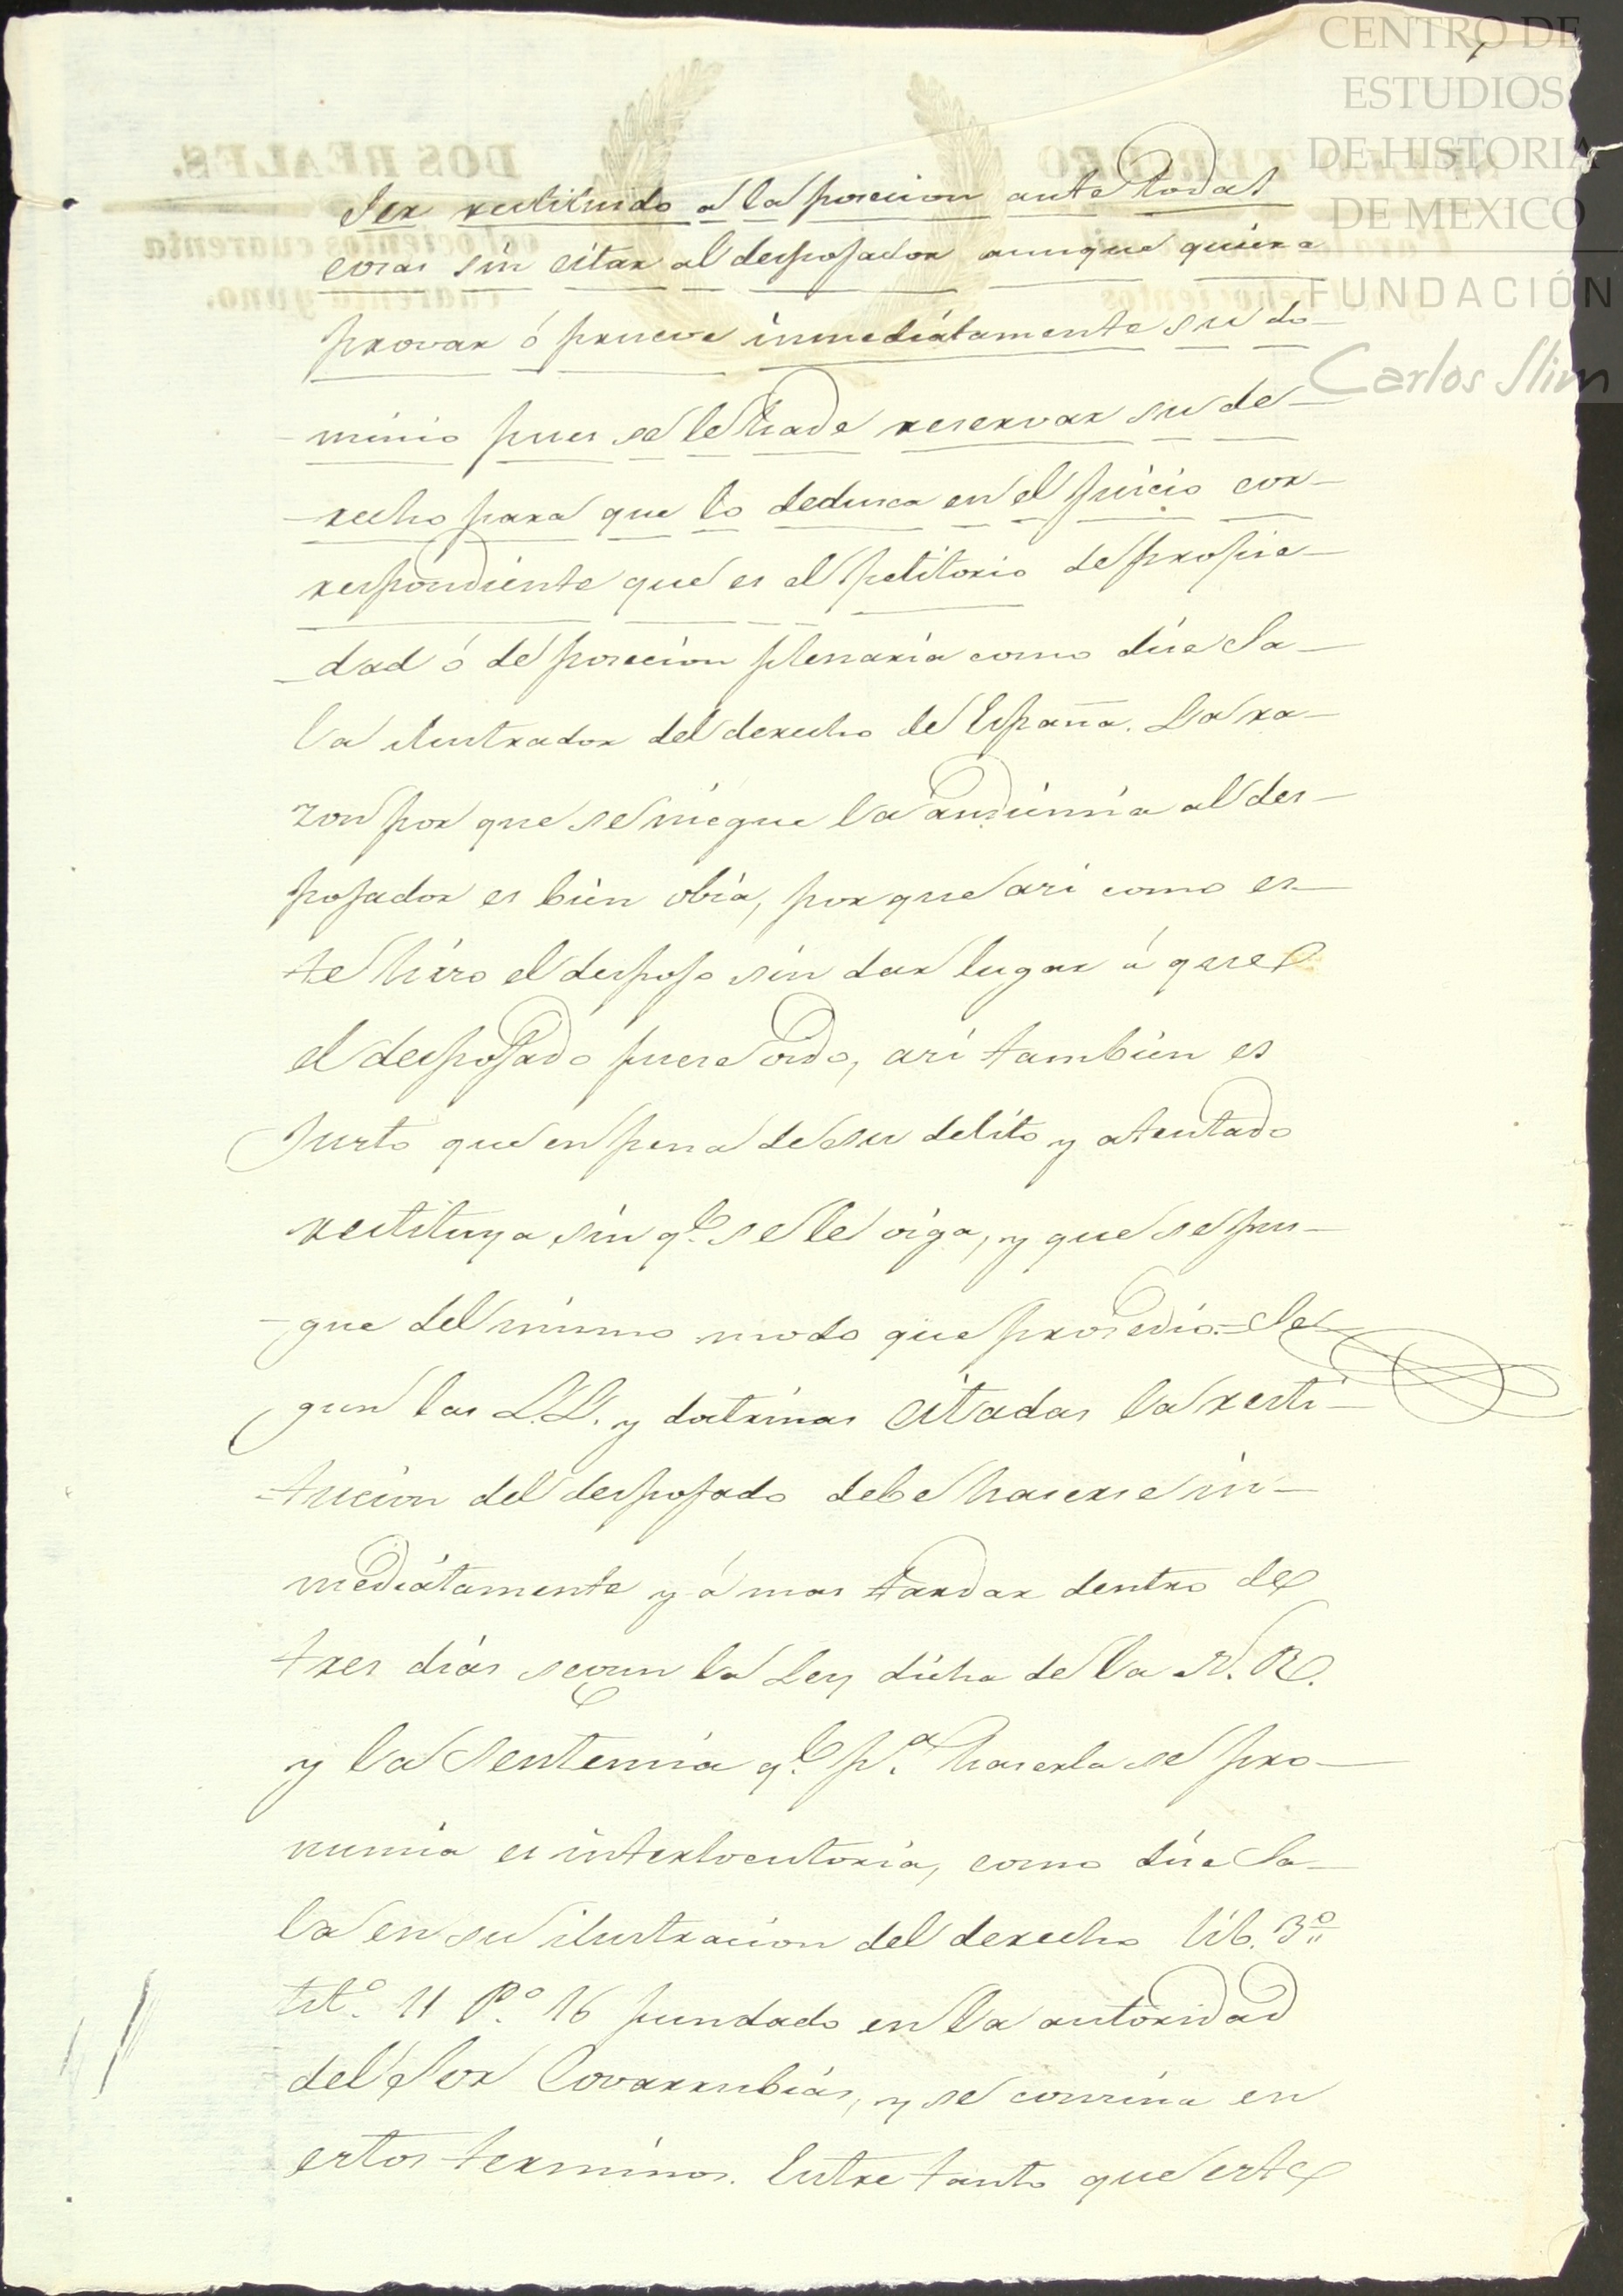 CENTRO DE
ESTUDIOS
DE HISTORIA
DE MEXICO
FUNDACIÓN
Carlos Slim
DOS REALES.
ser restituido a la posecion ante todas
cosas sin citar al despojador aunque quiera
provar ó prueve inmediatamente su do-
-minio pues se le ha de reservar su de-
-recho para que lo dedusca en el juicio cor-
respondiente que es el petitorio de propie-
-dad ó de posecion plenaria como dice Sa-
la ilustrador del derecho de España. La ra-
zon por que se niegue la audiencia al des-
pojador es bien obia, por que asi como es-
te hizo el despojo sin dar lugar á que
el despojado fuese oido, asi tambien es
justo que en pena de su delito y atentado
restituya sin q.e se le oiga, y que se pur-
-gue del mismo modo que procedio.= Se-
gun las L.L. y doctrinas citadas la resti-
-tucion del despojado debe hacerse in-
mediatamente y á mas tardar dentro de
tres dias segun la Ley dicha de la N. R.
y la sentencia q.e p.a hacerla se pro-
nuncia es interlocutoria, como dice Sa-
la en su ilustracion del derecho lib. 3.o
tit.o 11 P.o 16 fundado en la autoridad
del Sor Covarrubias, y se concina en
estos terminos. Entre tanto que este